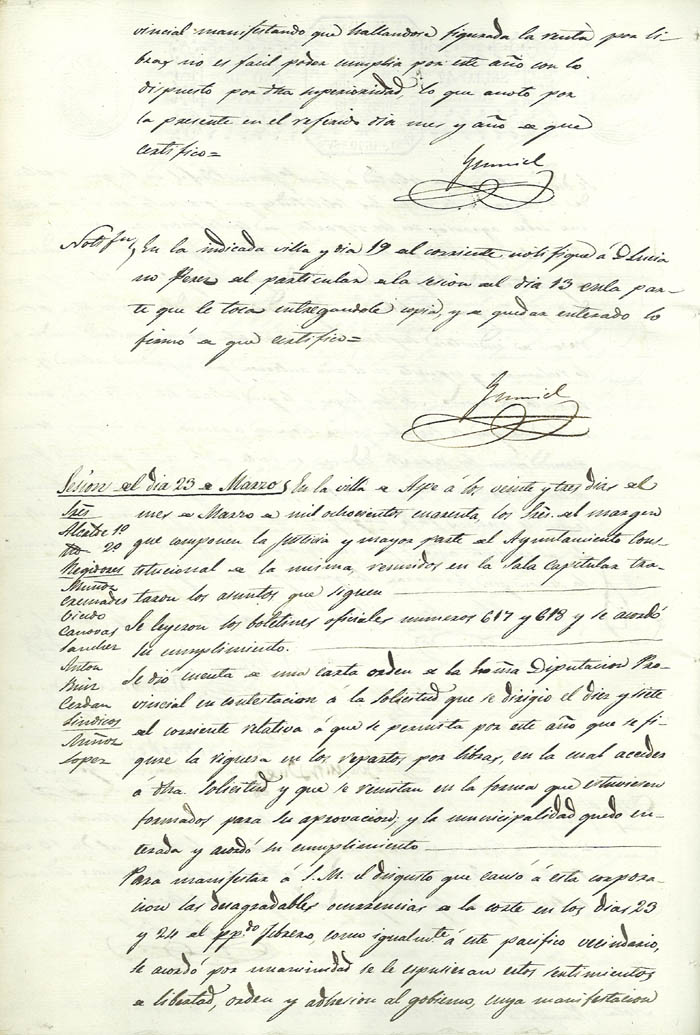 vincial manifestando que hallandose figurada la renta por li-
bras no es facil poder cumplir por este año con lo
dispuesto por dha superioridad, lo que anoto por
la presente en el referido dia mes y año de que
certifico=
Gumiel
En la indicada villa y dia 19 del corriente notifique á D. Lucia
no Perez el particular de la sesion del dia 13 en la par-
te que le toca entregandole copia, y de quedar enterado lo
firmó de que certifico=
Gumiel
Sesion del dia 23 de Marzo
En la villa de Aspe á los veinte y tres dias del
mes de Marzo de mil ochocientos cuarenta, los Sres. del margen
que componen la Justicia y mayor parte del Ayuntamiento Cons-
titucional de la misma, reunidos en la Sala Capitular tra-
taron los asuntos que siguen
Sres
Alcalde 1º
2º
Regidores
Muñoz
Cremades
Canovas
Sanchez
Anton
Ruiz
Cerdan
Sindicos
Muñoz
Lopez
Se leyeron los boletines oficiales numeros 617 y 618 y se acordó
su cumplimiento.
Se dió cuenta de una carta orden de la Diputacion Pro-
vincial en contestacion á la solicitud que se dirigio el diez y siete
del corriente relativa á que se permita por este año que se fi-
gure la riqueza en los repartos por libras, en la cual accede
á dha. solicitud y que se remitan en la forma que estuviesen
formados para su aprovacion; y la municipalidad quedo en-
terada y acordó su cumplimiento
Para manifestar á S.M. el disgusto que causó á esta corpora-
cion las desagradables ocurrencias de la corte en los dias 23
y 24 del pp.do febrero, como igualmte. á este pacifico vecindario,
se acordó por unanimidad se le espusieran estos sentimientos
de libertad, orden y adhesion al gobierno, cuya manifestacion